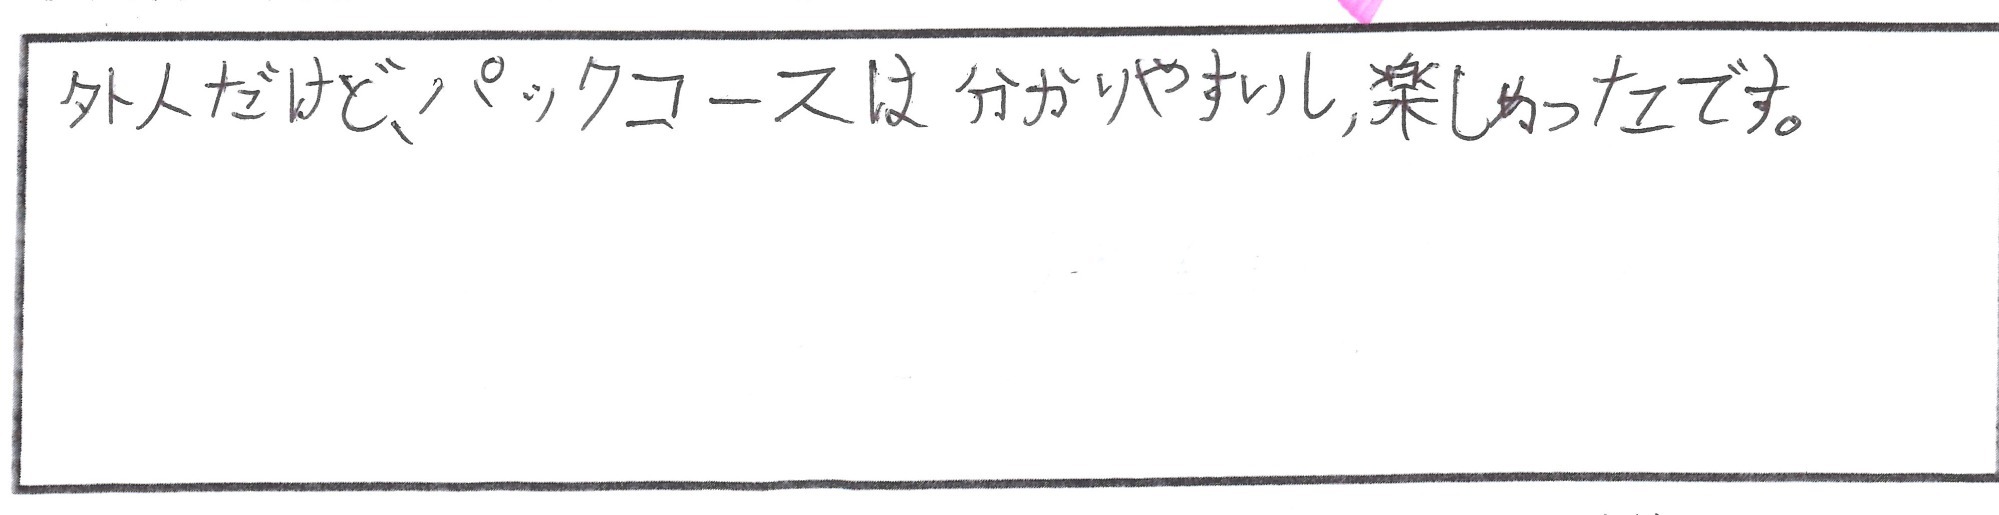 外人だけど、パックコースは分かりやすいし,楽しかったです。